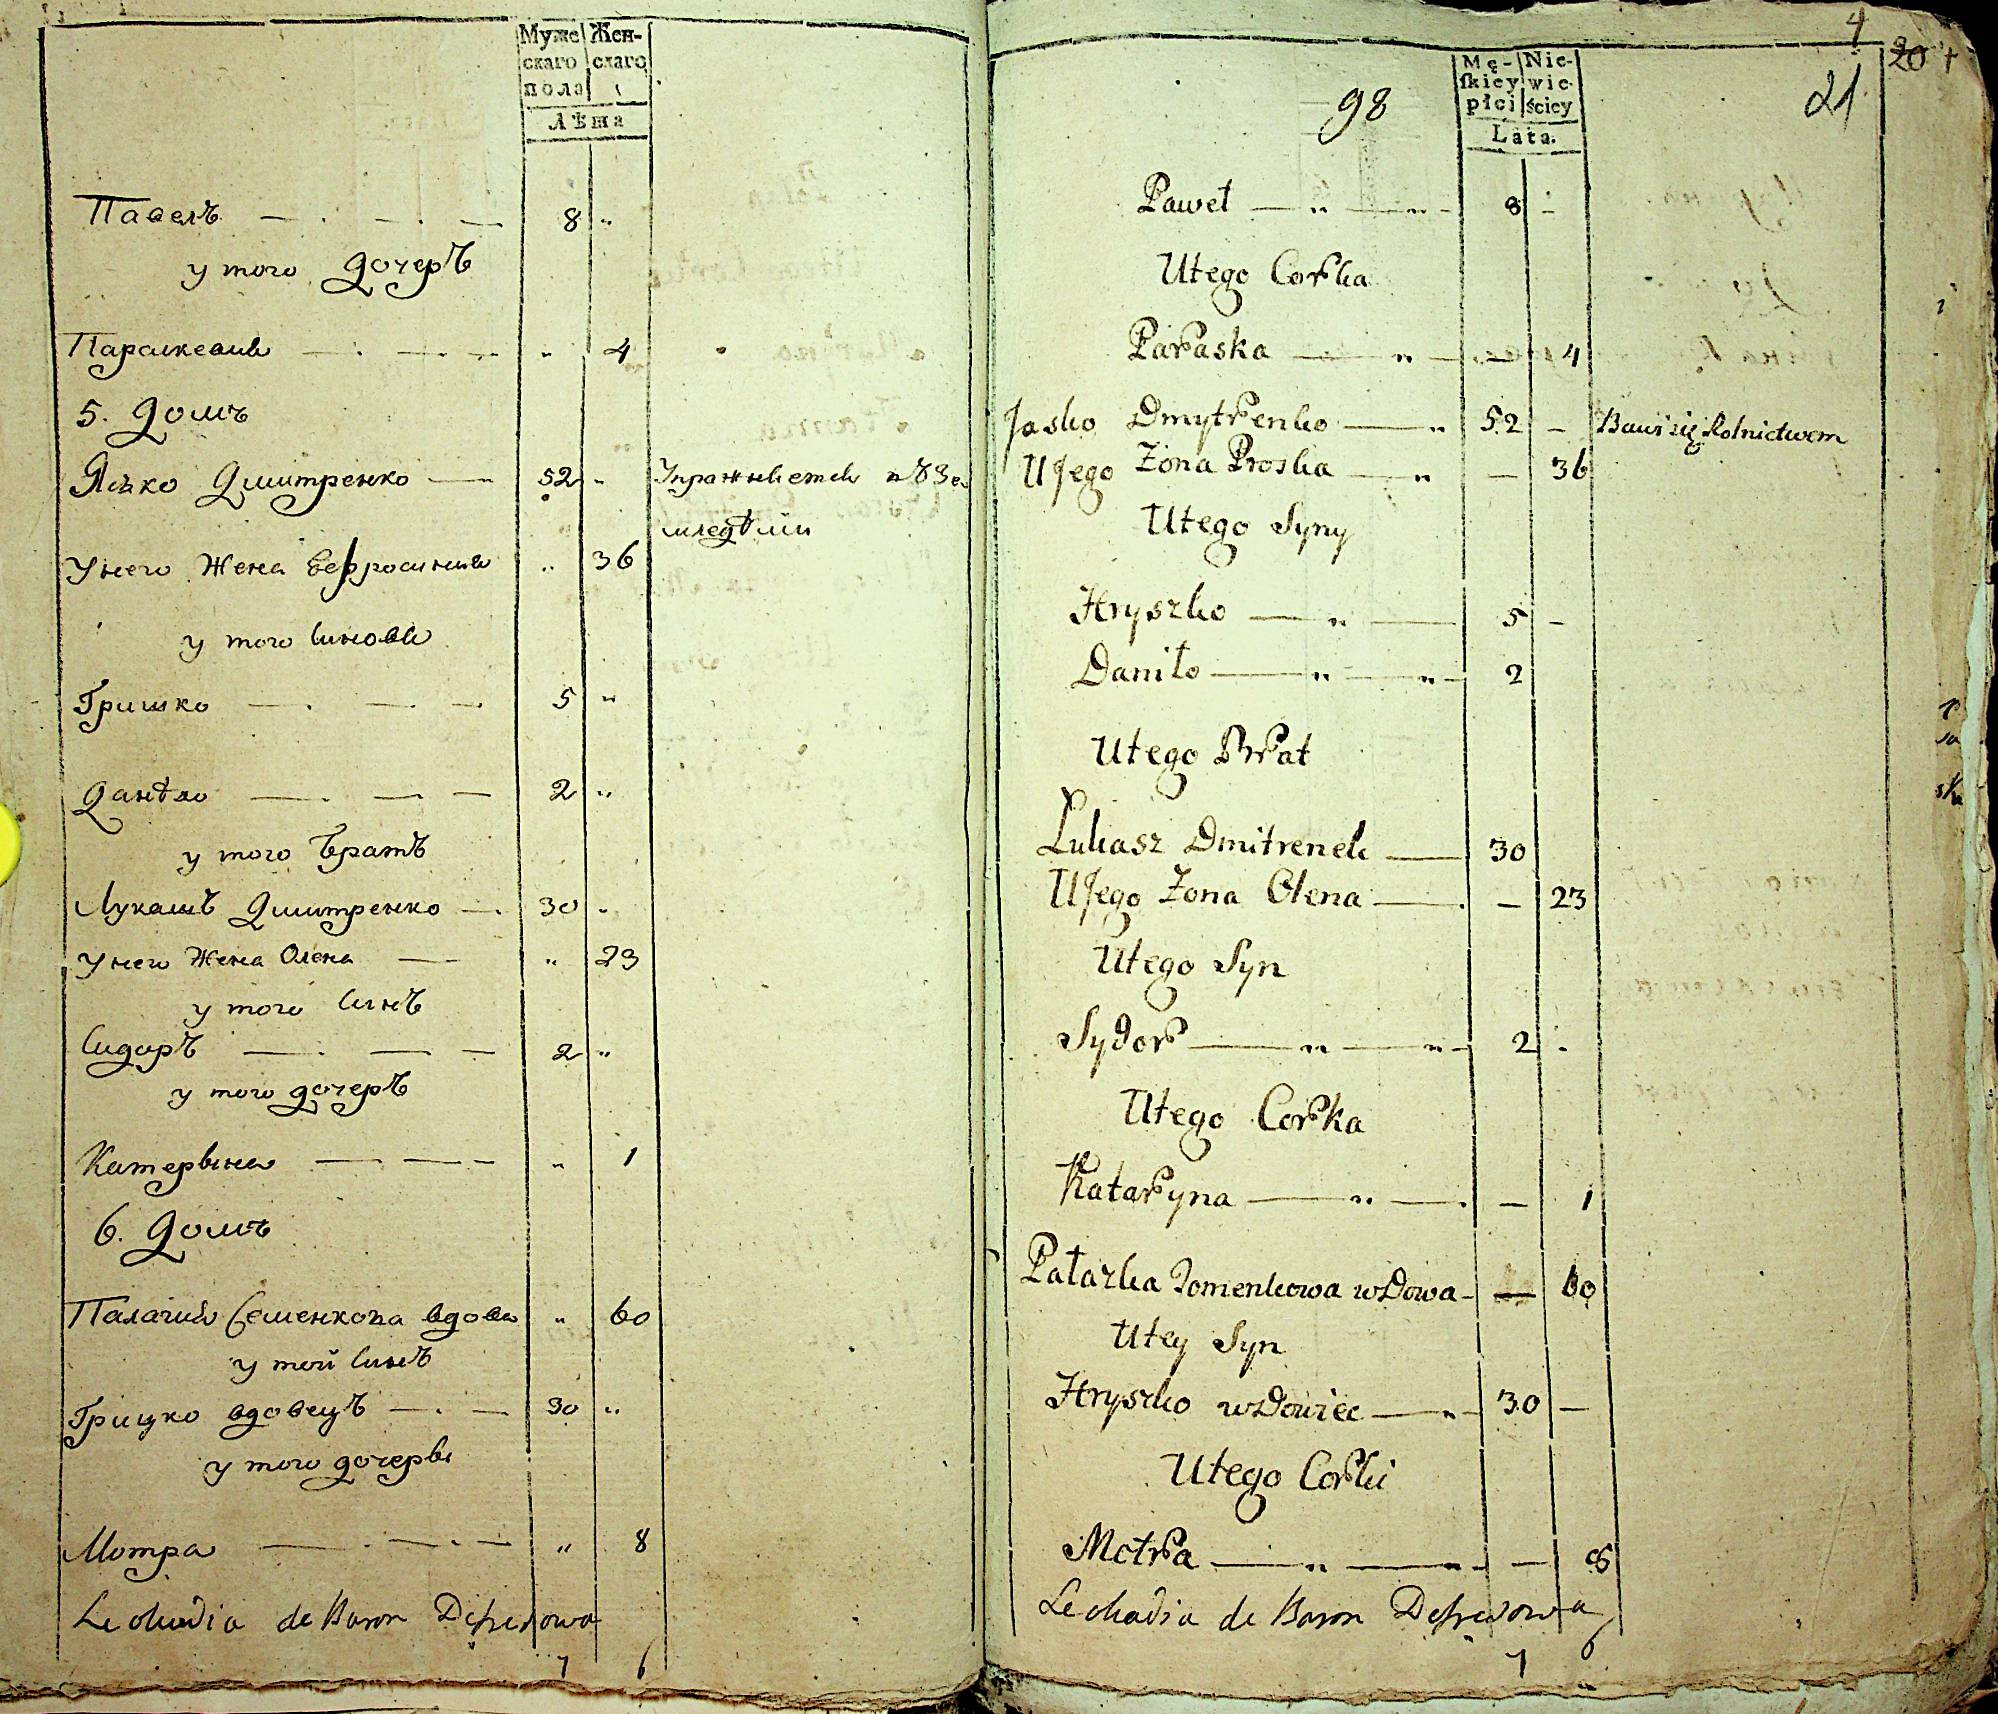 Муже Жен-
скаго скаго
пола
Лѣта
Павелъ 8 "
у того дочеръ
Параскевия " 4
5. Домъ
Яско Дмитренко 52 " Упражняется въ Зе
мледѣліи
У него Жена Евфросиния " 36
у того Синови
Гришко 5 "
Данѣло 2 "
у того Братъ
Лукашъ Дмитренко 30 "
У него Жена Олена " 23
у того Синъ
Сидоръ 2 "
у того дочеръ
Катерина " 1
6. Домъ
Палагия Семенкова вдова " 60
у той Синъ
Грицко вдовецъ 30 "
у того дочери
Мотра " 8
Leokadia de Baron
7 6
4
20
98
21
Mę- Nie-
skiey wie-
płci ściey
Lata.
Paweł 8 -
U tego Corka
Paraska - 4
Jasko Dmytrenko 52 - Bawi się Rolnictwem
U Jego Zona Proska - 36
U tego Syny
Hryszko 5 -
Daniło 2
U tego Brat
Lukasz Dmitrenek 30
U Jego Zona Olena - 23
U tego Syn
Sydor 2 -
U tego Corka
Kataryna - 1
Pałazka Semenkowa wdowa - 60
U tey Syn
Hryszko wdowiec 30 -
U tego Corki
Motra - 8
Leokadia de Baron
7 6